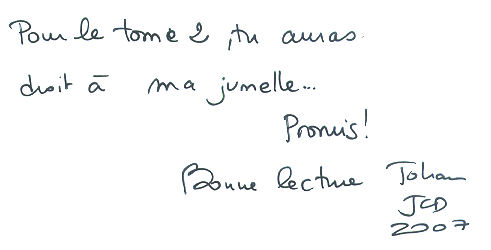 Pour le tome 2, tu auras
droit à ma jumelle...
Promis!
Bonne lecture Johan
JCD
2007